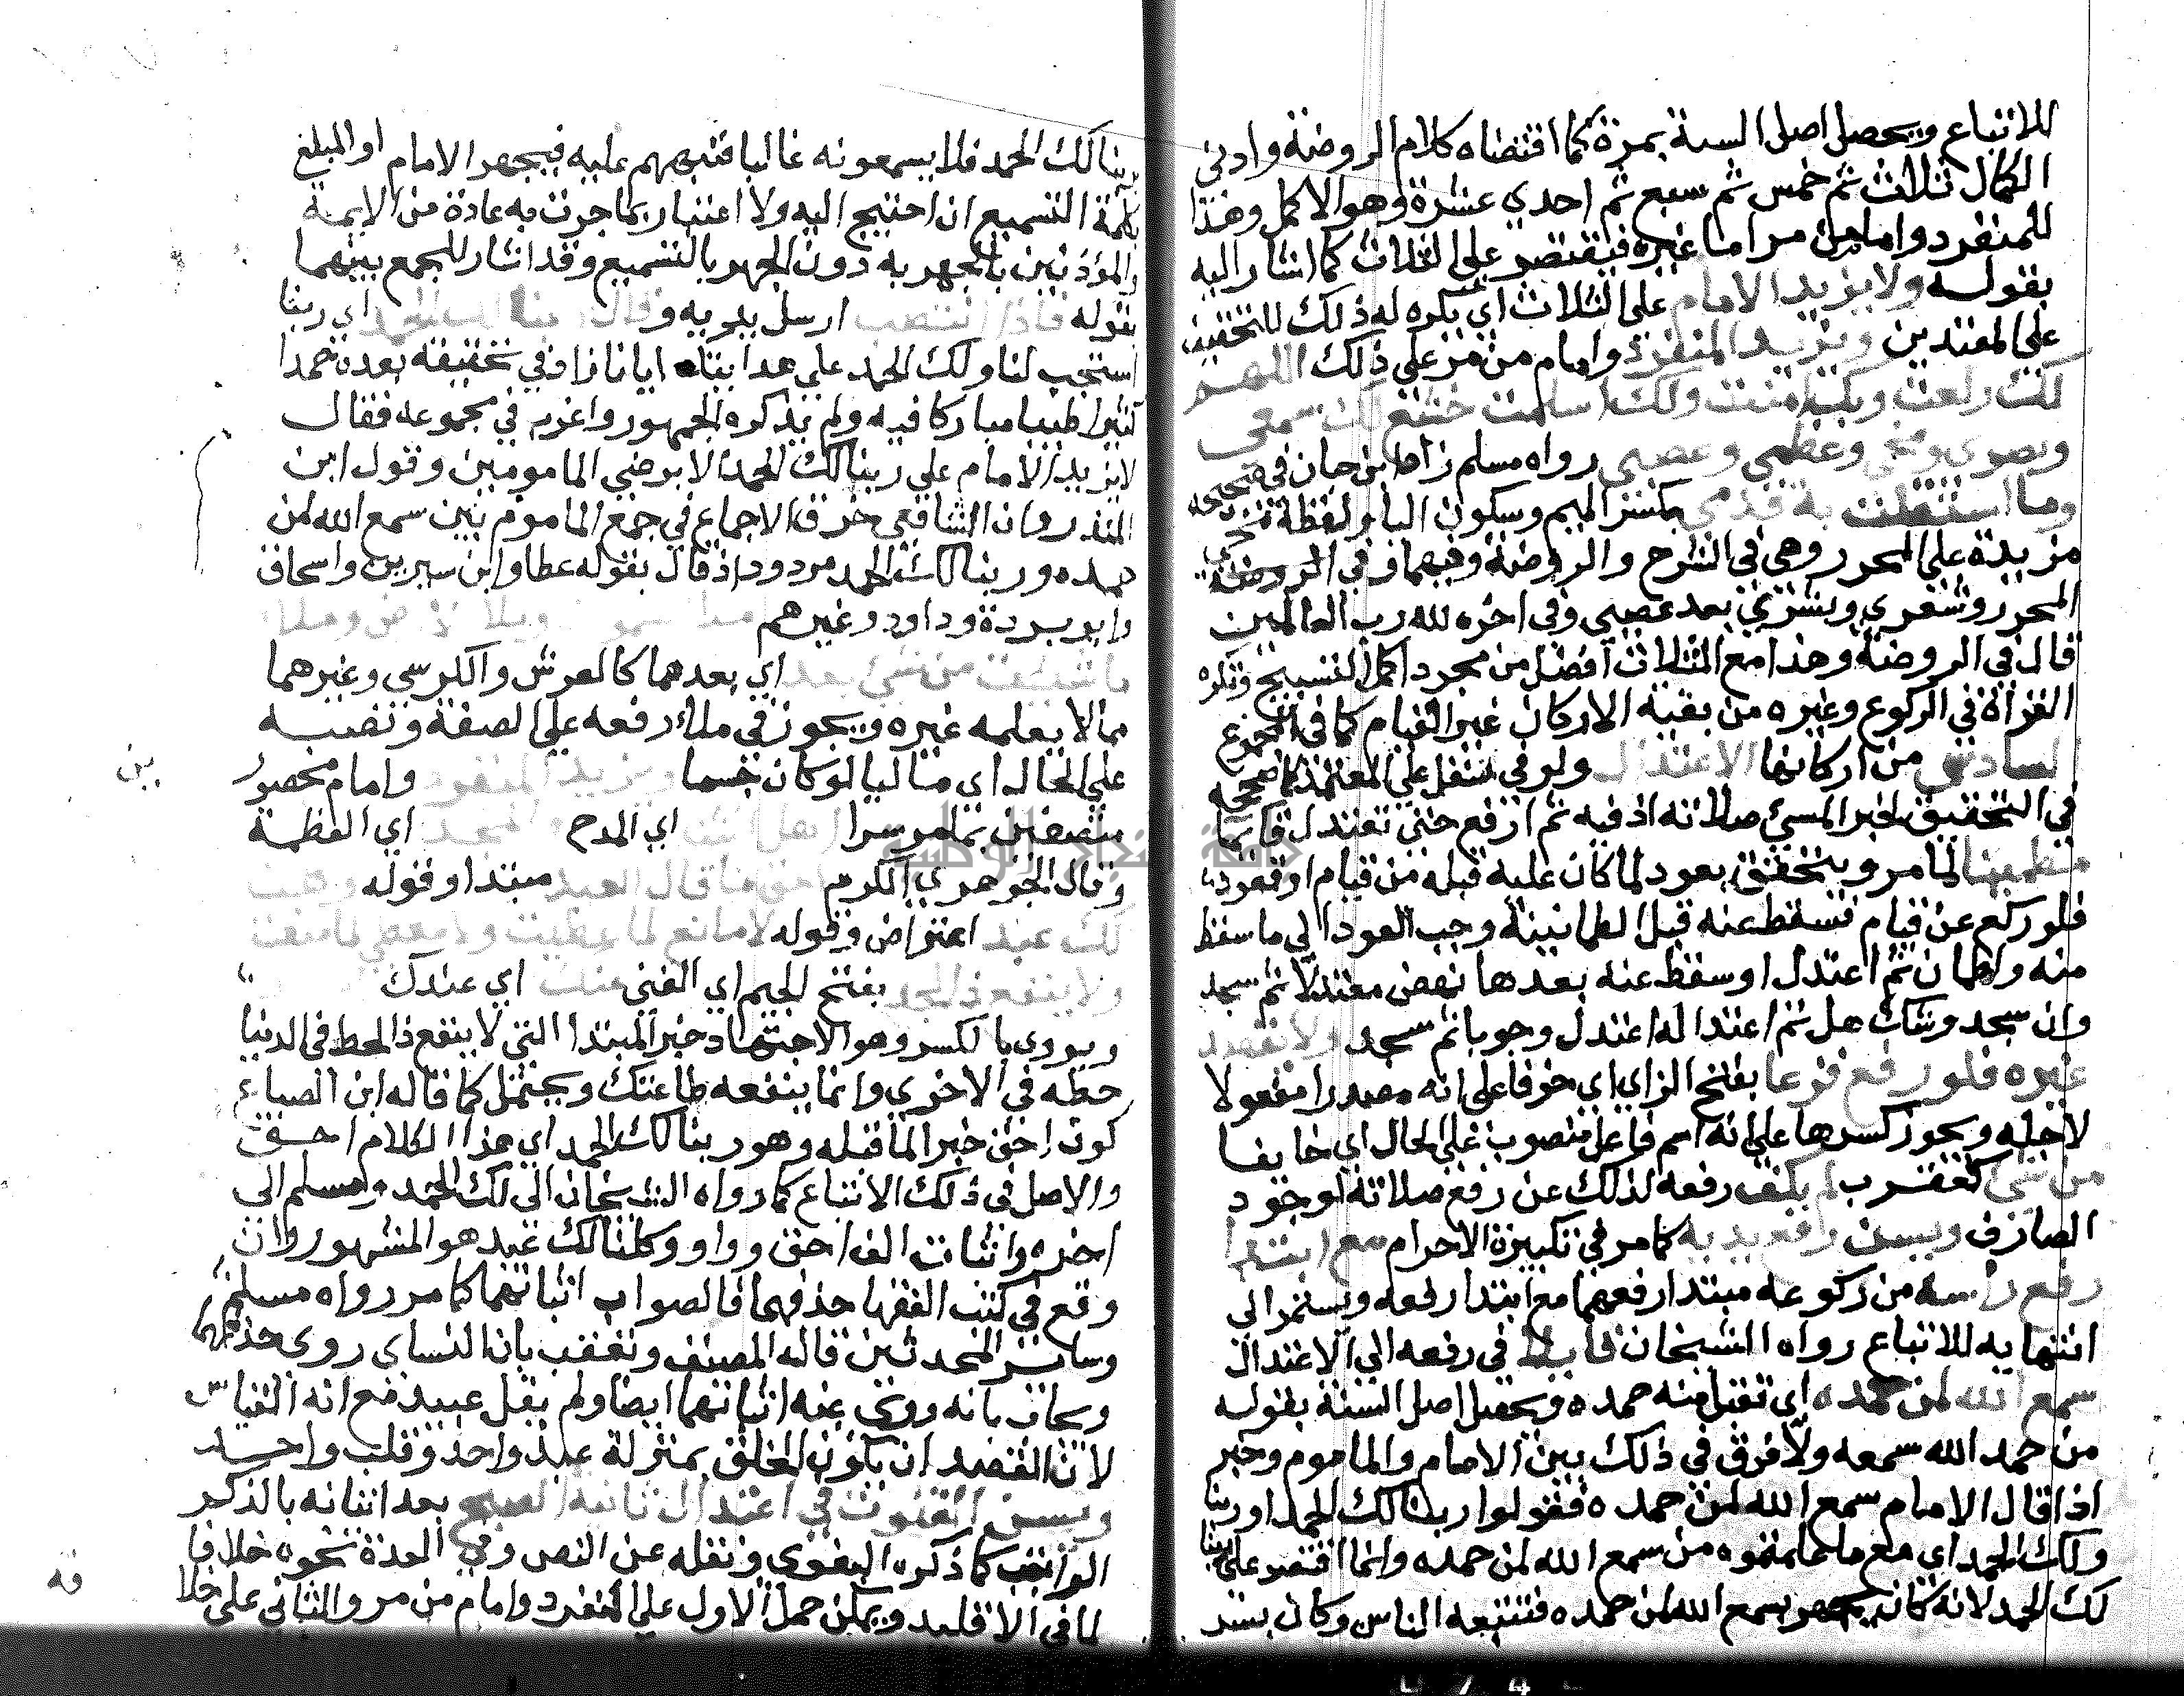 للاتباع ويحصل اصل السنة بمرة كما اقتضاه كلام الروضة وادني
الكمال ثلاث ثم خمس ثم سبع ثم احدي عشرة وهو الاكمل وهذا
للمنفرد وامام من مر اما غيره فيقتصر علي الثلاث كما اشار اليه
بقوله ولا يزيد الامام علي الثلاث اي يكره له ذلك للتخفيف
علي المقتدين ويزيد المنفرد وامام من مر علي ذلك اللهم
لك ركعت وبك امنت ولك اسلمت خشع لك سمعي
وبصري ومخي وعظمي وعصبي رواه مسلم زاد ابن حبان في صحيحه
وما استقلت به قدمي بكسر الميم وسكون اليا ولفظة مخي
مزيدة علي المحرر وهي في الشرح والروضة وفيهما وفي
المحرر وشعري وبشري بعد عصبي وفي اخره لله رب العالمين
قال في الروضة وهذا مع الثلاث افضل من مجرد اكمل التسبيح وتكره
القراة في الركوع وغيره من بقية الاركان غير القيام كما في المجموع
السادس من اركانها الاعتدال ولو في نفل علي المعتمد كما صححه
في التحقيق لخبر المسئ صلاته اذ فيه ثم ارفع حتي تعتدل قايما
مطمينا لما مر ويتحقق بعود لما كان عليه قبله من قيام او قعود
فلو ركع عن قيام فسقط عنه قبل الطمانينة وجب العود الي ما سقط
منه واطمان ثم اعتدل او سقط عنه بعدها نهض معتدلا ثم سجد
وان سجد وشك هل تم اعتداله اعتدل وجوبا ثم سجد ولا يقصد
غيره فلو رفع فزعا بفتح الزاي اي خوفا علي انه مصدرا مفعولا
لاجله ويجوز كسرها علي انه اسم فاعل منصوب علي الحال اي خايفا
من شي كعقرب لم يكف رفعه لذلك عن رفع صلاته لوجود
الصارف ويسن رفع يديه كما مر في تكبيرة الاحرام مع ابتدا
رفع راسه من ركوعه مبتدا رفعهما مع ابتدا رفعه ويستمر الي
انتهايه للاتباع رواه الشيخان قايلا في رفعه الي الاعتدال
سمع الله لمن حمده اي تقبل منه حمده ويحصل اصل السنة بقوله
من حمد الله سمعه ولا فرق في ذلك بين الامام والماموم وخبر
اذا قال الامام سمع الله لمن حمده فقولوا ربنا لك الحمد او ربنا
ولك الحمد اي مع ما علمتموه من سمع الله لمن حمده وانما اقتصر علي ربنا
لك الحمد لانه كان يجهر بسمع الله لمن حمده فتتبعه الناس وكان يسر
ربنا لك الحمد فلا يسمعونه غالبا فنبههم عليه فيجهر الامام او المبلغ
بكلمة التسميع ان احتيج اليه ولا اعتبار بما جرت به عادة من الايمة
والمؤذنين بالجهر به دون الجهر بالتسميع وقد اشار للجمع بينهما
بقوله فاذا انتصب ارسل يديه وقال ربنا لك الحمد اي ربنا
استجب لنا ولك الحمد علي هدايتك ايانا زاد في تحقيقه بعده حمدا
كثيرا طيبا مباركا فيه ولم يذكره الجمهور واغرب في مجموعه فقال
لا يزيد الامام علي ربنا لك الحمد الا برضي المامومين وقول ابن
المنذر وان الشافعي خرق الاجماع في جمع الماموم بين سمع الله لمن
حمده وربنا لك الحمد مردود اذ قال بقوله عطا وابن سيرين واسحاق
وابو بردة وداود وغيرهم ملا السموات وملا الارض وملا
ما شيت من شي بعد اي بعدهما كالعرش والكرسي وغيرهما
مما لا يعلمه غيره ويجوز في ملا رفعه علي الصفة ونصبه
علي الحال اي ماليا لو كان جسما ويزيد المنفرد وامام محصورين
متصفين بما مر سرا اهل الثنا اي المدح والمجد اي العظمة
وقال الجوهري الكرم احق ما قال العبد مبتدا وقوله وكلنا
لك عبد اعتراض وقوله لا مانع لما اعطيت ولا معطي لما منعت
ولا ينفع ذا الجد بفتح الجيم اي الغني منك اي عندك
ويروي بالكسر وهو الاجتهاد خبر المبتدا التي لا ينفع ذا الحظ في الدنيا
حظه في الاخري وانما ينفعه طاعتك ويحتمل كما قاله ابن الصباغ
كون احق خبرا لما قبله وهو ربنا لك الحمد اي هذا الكلام احق
والاصل في ذلك الاتباع كما رواه الشيخان الي لك الحمد ومسلم الي
اخره واثبات الف احق وواو وكلنا لك عبد هو المشهور وان
وقع في كتب الفقها حذفهما فالصواب اثباتهما كما مر رواه مسلم
وساير المحدثين قاله المصنف وتعقب بان النساي روي حذفهما
ويجاب بانه روي عنه اثباتهما ايضا ولم يقل عبيد مع انه القياس
لان القصد ان يكون الخلق بمنزلة عبد واحد وقلب واحد
ويسن القنوت في اعتدال ثانية الصبح بعد اتيانه بالذكر
الراتب كما ذكره البغوي ونقله عن النص وفي العدة نحوه خلافا
لما في الاقليد ويمكن حمل الاول علي المنفرد وامام من مر والثاني علي خلا
فه